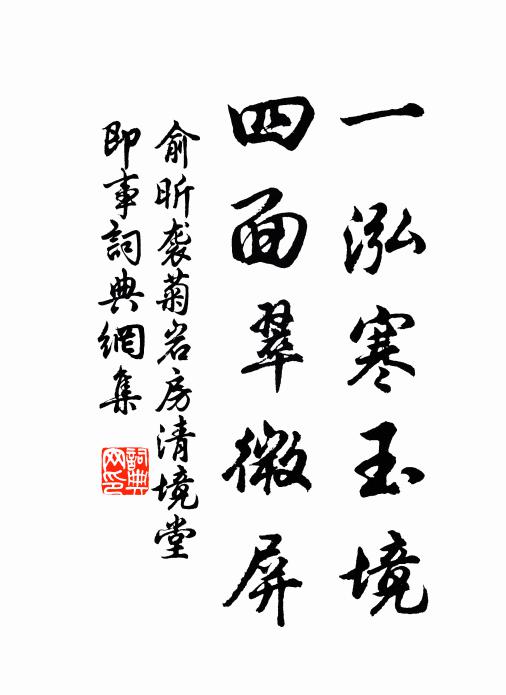 一泓寒玉境
四面翠微屏
俞昕袭菊岩房清境堂
即事詞典網集
詞典
网印